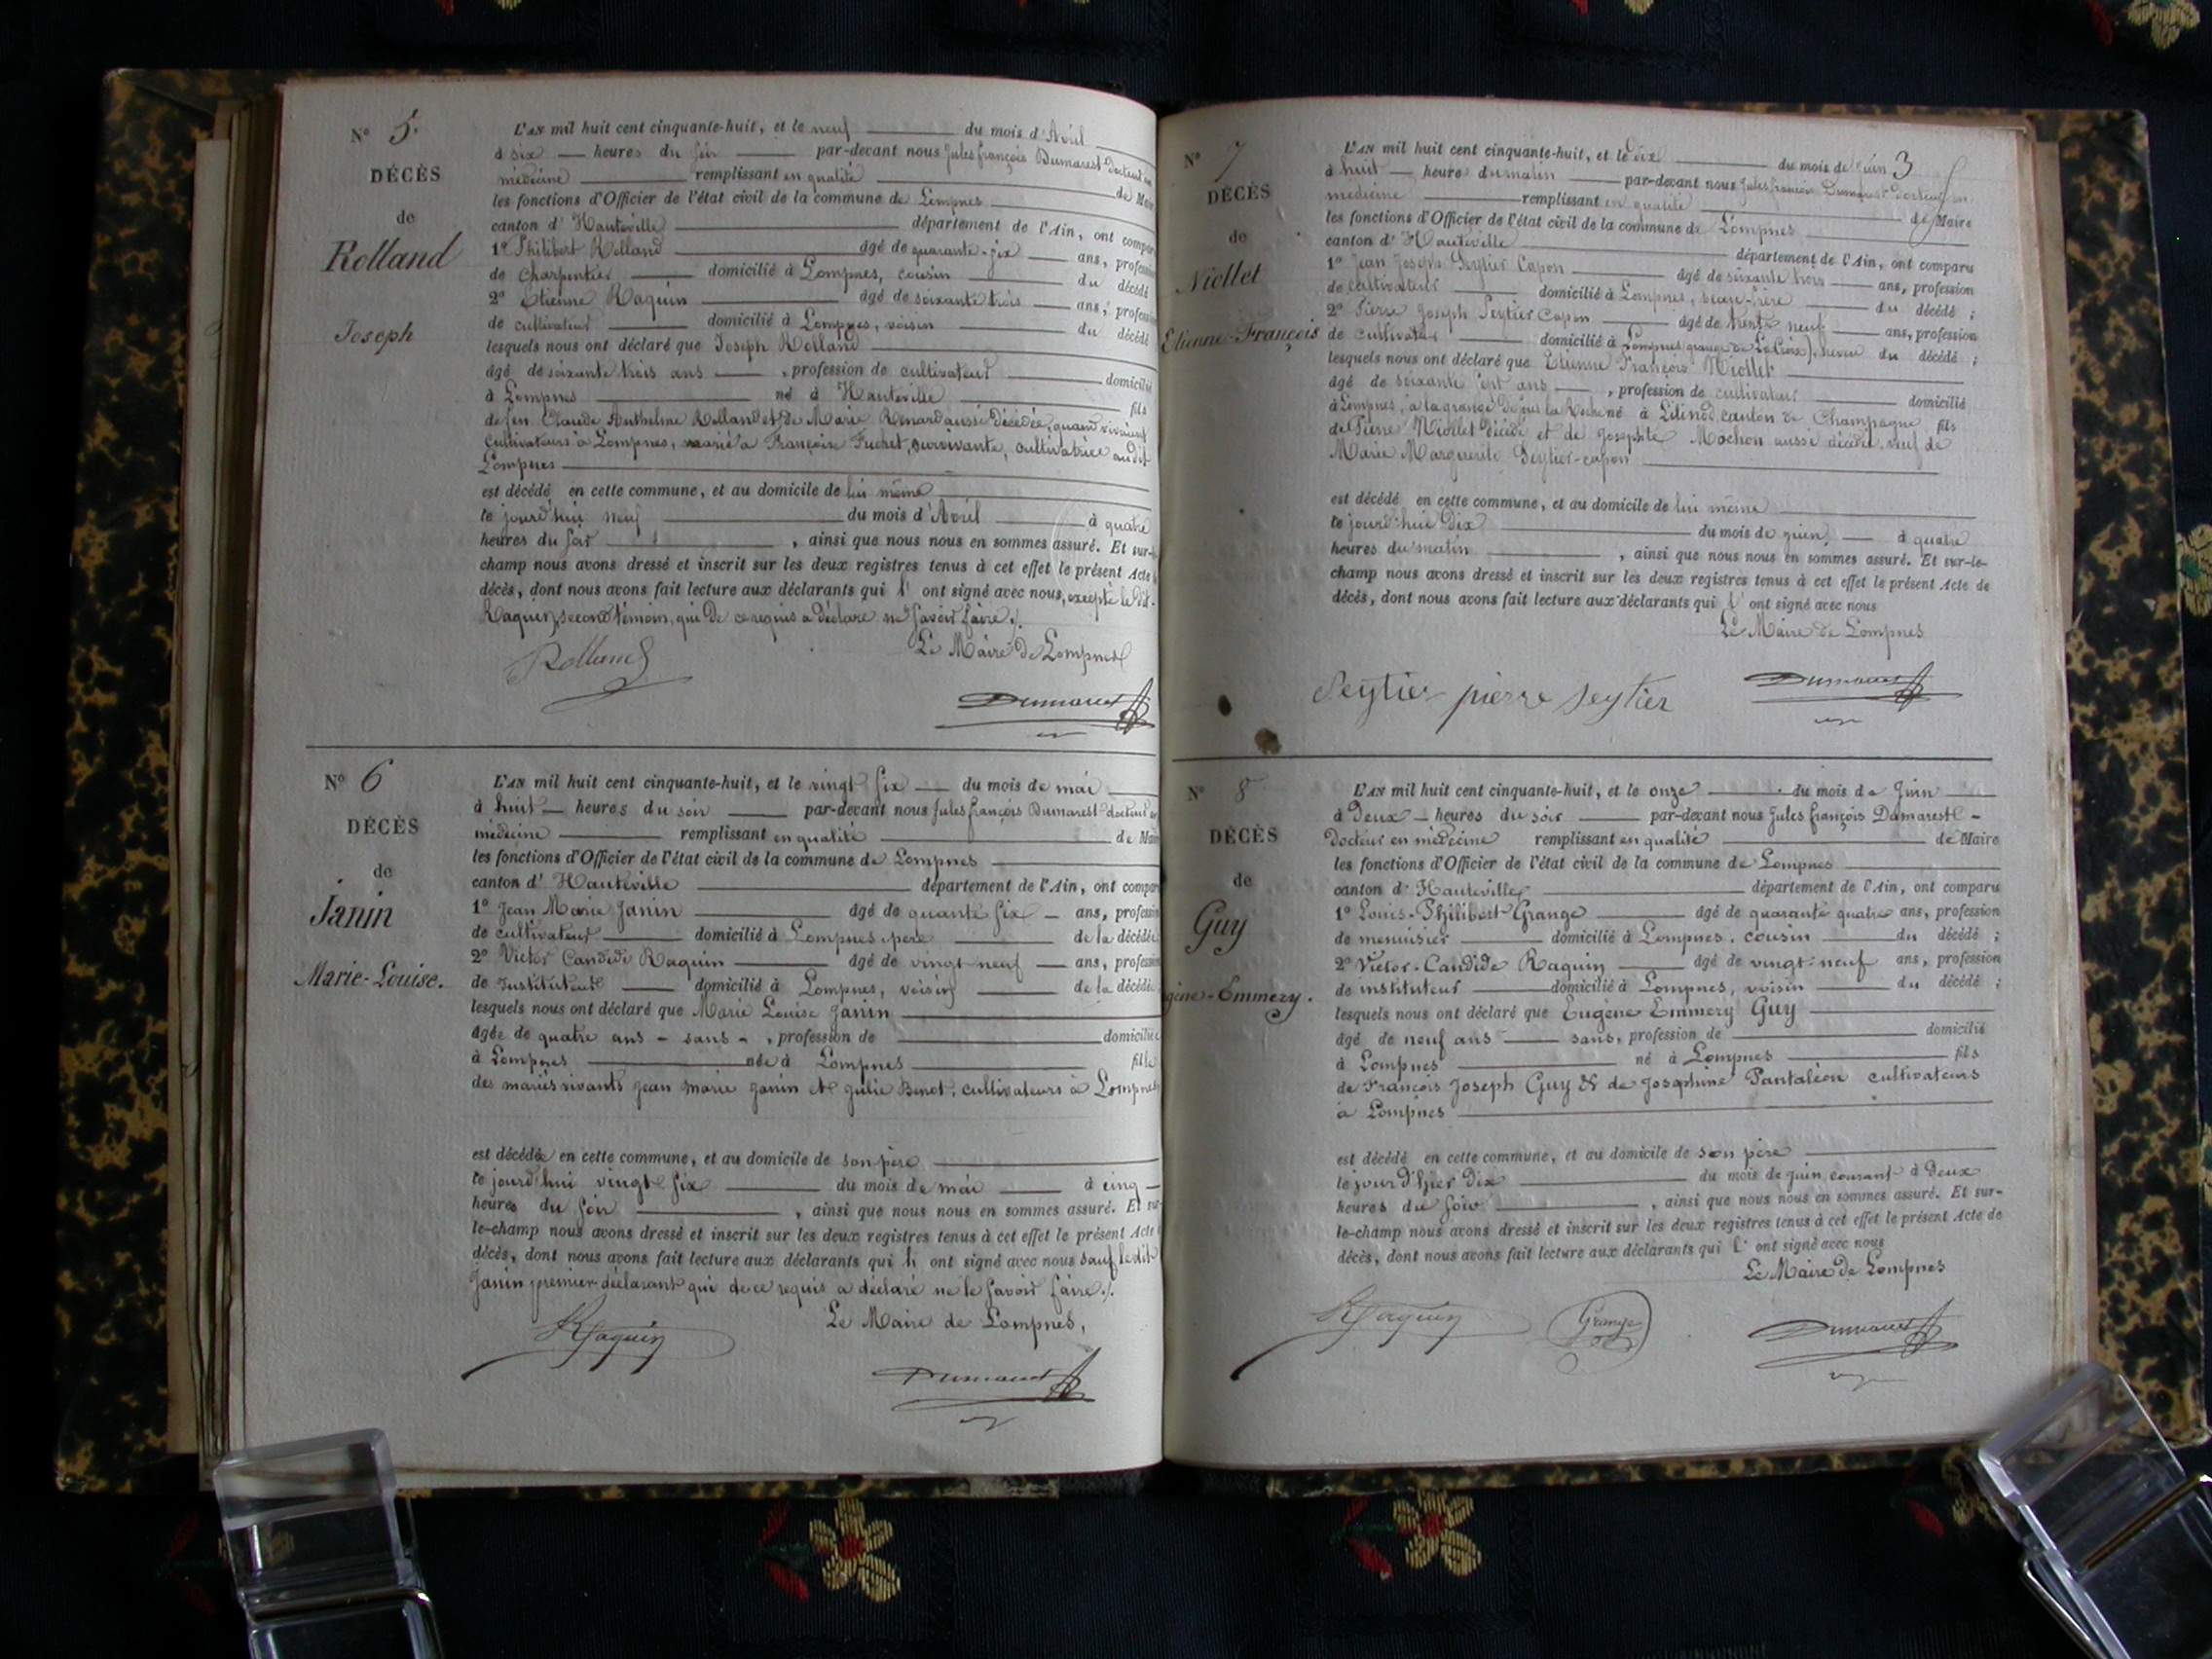 N° 5.
DÉCÈS
de
Rolland
Joseph
L'AN mil huit cent cinquante-huit, et le neuf du mois d'Avril
à six heures du soir par-devant nous Jules françois Dumarest docteur en
médecine remplissant en qualité de Maire
les fonctions d'Officier de l'état civil de la commune de Lompnes
canton d'Hauteville département de l'Ain, ont comparu
1° Philibert Rolland âgé de quarante-six ans, profession
de Charpentier domicilié à Lompnes, cousin du décédé
2° Etienne Raquin âgé de soixante trois ans, profession
de cultivateur domicilié à Lompnes, voisin du décédé
lesquels nous ont déclaré que Joseph Rolland
âgé de soixante trois ans, profession de cultivateur domicilié
à Lompnes né à Hauteville fils
de feu Claude Anthelme Rolland et de Marie Renard aussi décédée, quand vivaient
cultivateurs à Lompnes, marié à Françoise Fuchet, survivante, cultivatrice audit
Lompnes
est décédé en cette commune, et au domicile de lui même
le jourd'hui neuf du mois d'Avril à quatre
heures du soir, ainsi que nous nous en sommes assuré. Et sur-le-
champ nous avons dressé et inscrit sur les deux registres tenus à cet effet le présent Acte de
décès, dont nous avons fait lecture aux déclarants qui l' ont signé avec nous, excepté le dit
Raquin, second témoin, qui de ce requis a déclaré ne savoir faire./.
Le Maire de Lompnes
Rolland
Dumarest
N° 6
DÉCÈS
de
Janin
Marie-Louise.
L'AN mil huit cent cinquante-huit, et le vingt six du mois de mai
à huit heures du soir par-devant nous Jules françois Dumarest docteur en
médecine remplissant en qualité de Maire
les fonctions d'Officier de l'état civil de la commune de Lompnes
canton d'Hauteville département de l'Ain, ont comparu
1° Jean Marie Janin âgé de quante six ans, profession
de cultivateur domicilié à Lompnes, père de la décédée
2° Victor Candide Raquin âgé de vingt-neuf ans, profession
de Instituteur domicilié à Lompnes, voisin de la décédée
lesquels nous ont déclaré que Marie Louise Janin
âgée de quatre ans - sans -, profession de domiciliée
à Lompnes née à Lompnes fille
des mariés vivants Jean Marie Janin et Julie Binot, cultivateurs à Lompnes
est décédée en cette commune, et au domicile de son père
le jourd'hui vingt six du mois de mai à cinq
heures du soir, ainsi que nous nous en sommes assuré. Et sur-
le-champ nous avons dressé et inscrit sur les deux registres tenus à cet effet le présent Acte de
décès, dont nous avons fait lecture aux déclarants qui l' ont signé avec nous sauf ledit
Janin premier déclarant qui de ce requis a déclaré ne le savoir faire./.
Le Maire de Lompnes,
Raquin
Dumarest
N° 7
DÉCÈS
de
Niollet
Etienne-François
3
L'AN mil huit cent cinquante-huit, et le dix du mois de Juin
à huit heures du matin par-devant nous Jules françois Dumarest docteur en
médecine remplissant en qualité de Maire
les fonctions d'Officier de l'état civil de la commune de Lompnes
canton d'Hauteville département de l'Ain, ont comparu
1° Jean Joseph Seytier Capon âgé de soixante trois ans, profession
de cultivateur domicilié à Lompnes, beau-frère du décédé;
2° Pierre Joseph Seytier Capon âgé de trente neuf ans, profession
de cultivateur domicilié à Lompnes, neveu du décédé;
lesquels nous ont déclaré que Etienne François Niollet
âgé de soixante sept ans, profession de cultivateur domicilié
à Lompnes, à la grange né à Lilinod canton de Champagne fils
de Pierre Niollet décédé et de Josephte Mochon aussi décédée, veuf de
Marie Marguerite Seytier-capon
est décédé en cette commune, et au domicile de lui même
le jourd'hui dix du mois de juin, à quatre
heures du matin, ainsi que nous nous en sommes assuré. Et sur-le-
champ nous avons dressé et inscrit sur les deux registres tenus à cet effet le présent Acte de
décès, dont nous avons fait lecture aux déclarants qui l' ont signé avec nous
Le Maire de Lompnes
Seytier pierre seytier
Dumarest
N° 8
DÉCÈS
de
Guy
gène-Emmery.
L'AN mil huit cent cinquante-huit, et le onze du mois de Juin
à deux heures du soir par-devant nous Jules françois Dumarest
docteur en médecine remplissant en qualité de Maire
les fonctions d'Officier de l'état civil de la commune de Lompnes
canton d'Hauteville département de l'Ain, ont comparu
1° Louis-Philibert Grange âgé de quarante quatre ans, profession
de menuisier domicilié à Lompnes, cousin du décédé;
2° Victor-Candide Raquin âgé de vingt-neuf ans, profession
de instituteur domicilié à Lompnes, voisin du décédé;
lesquels nous ont déclaré que Eugène Emmery Guy
âgé de neuf ans sans, profession de domicilié
à Lompnes né à Lompnes fils
de François Joseph Guy & de Josephine Pantaléon cultivateurs
à Lompnes
est décédé en cette commune, et au domicile de son père
le jour d'hier dix du mois de juin, courant à deux
heures du soir, ainsi que nous nous en sommes assuré. Et sur-
le-champ nous avons dressé et inscrit sur les deux registres tenus à cet effet le présent Acte de
décès, dont nous avons fait lecture aux déclarants qui l' ont signé avec nous
Le Maire de Lompnes
Raquin Grange
Dumarest